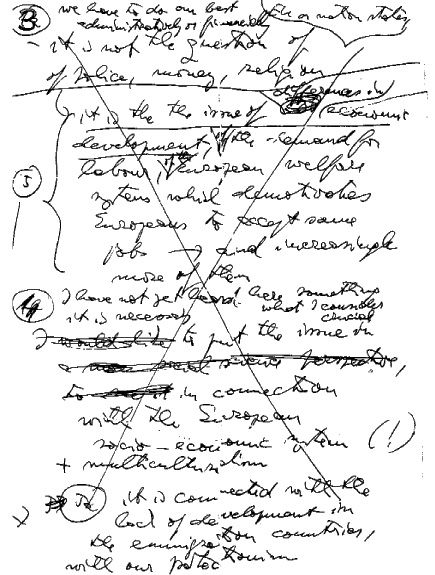 3 we have to do our best
administratively or financially
- it is not the question of
of police, money, religion
differences in
it is the the issue of economic
development, the demand for
5 labour, the European welfare
system which demotivates
Europeans to accept some
jobs → and increasingly
more of them
I have not yet heard here something
it is necessary what I consider
crucial
I would like to put the issue in
a more social science perspective,
to in connection
with the European
socio-economic system (1)
+ multiculturalism
it is connected with the
lack of development in
the emigration countries,
with our protectionism